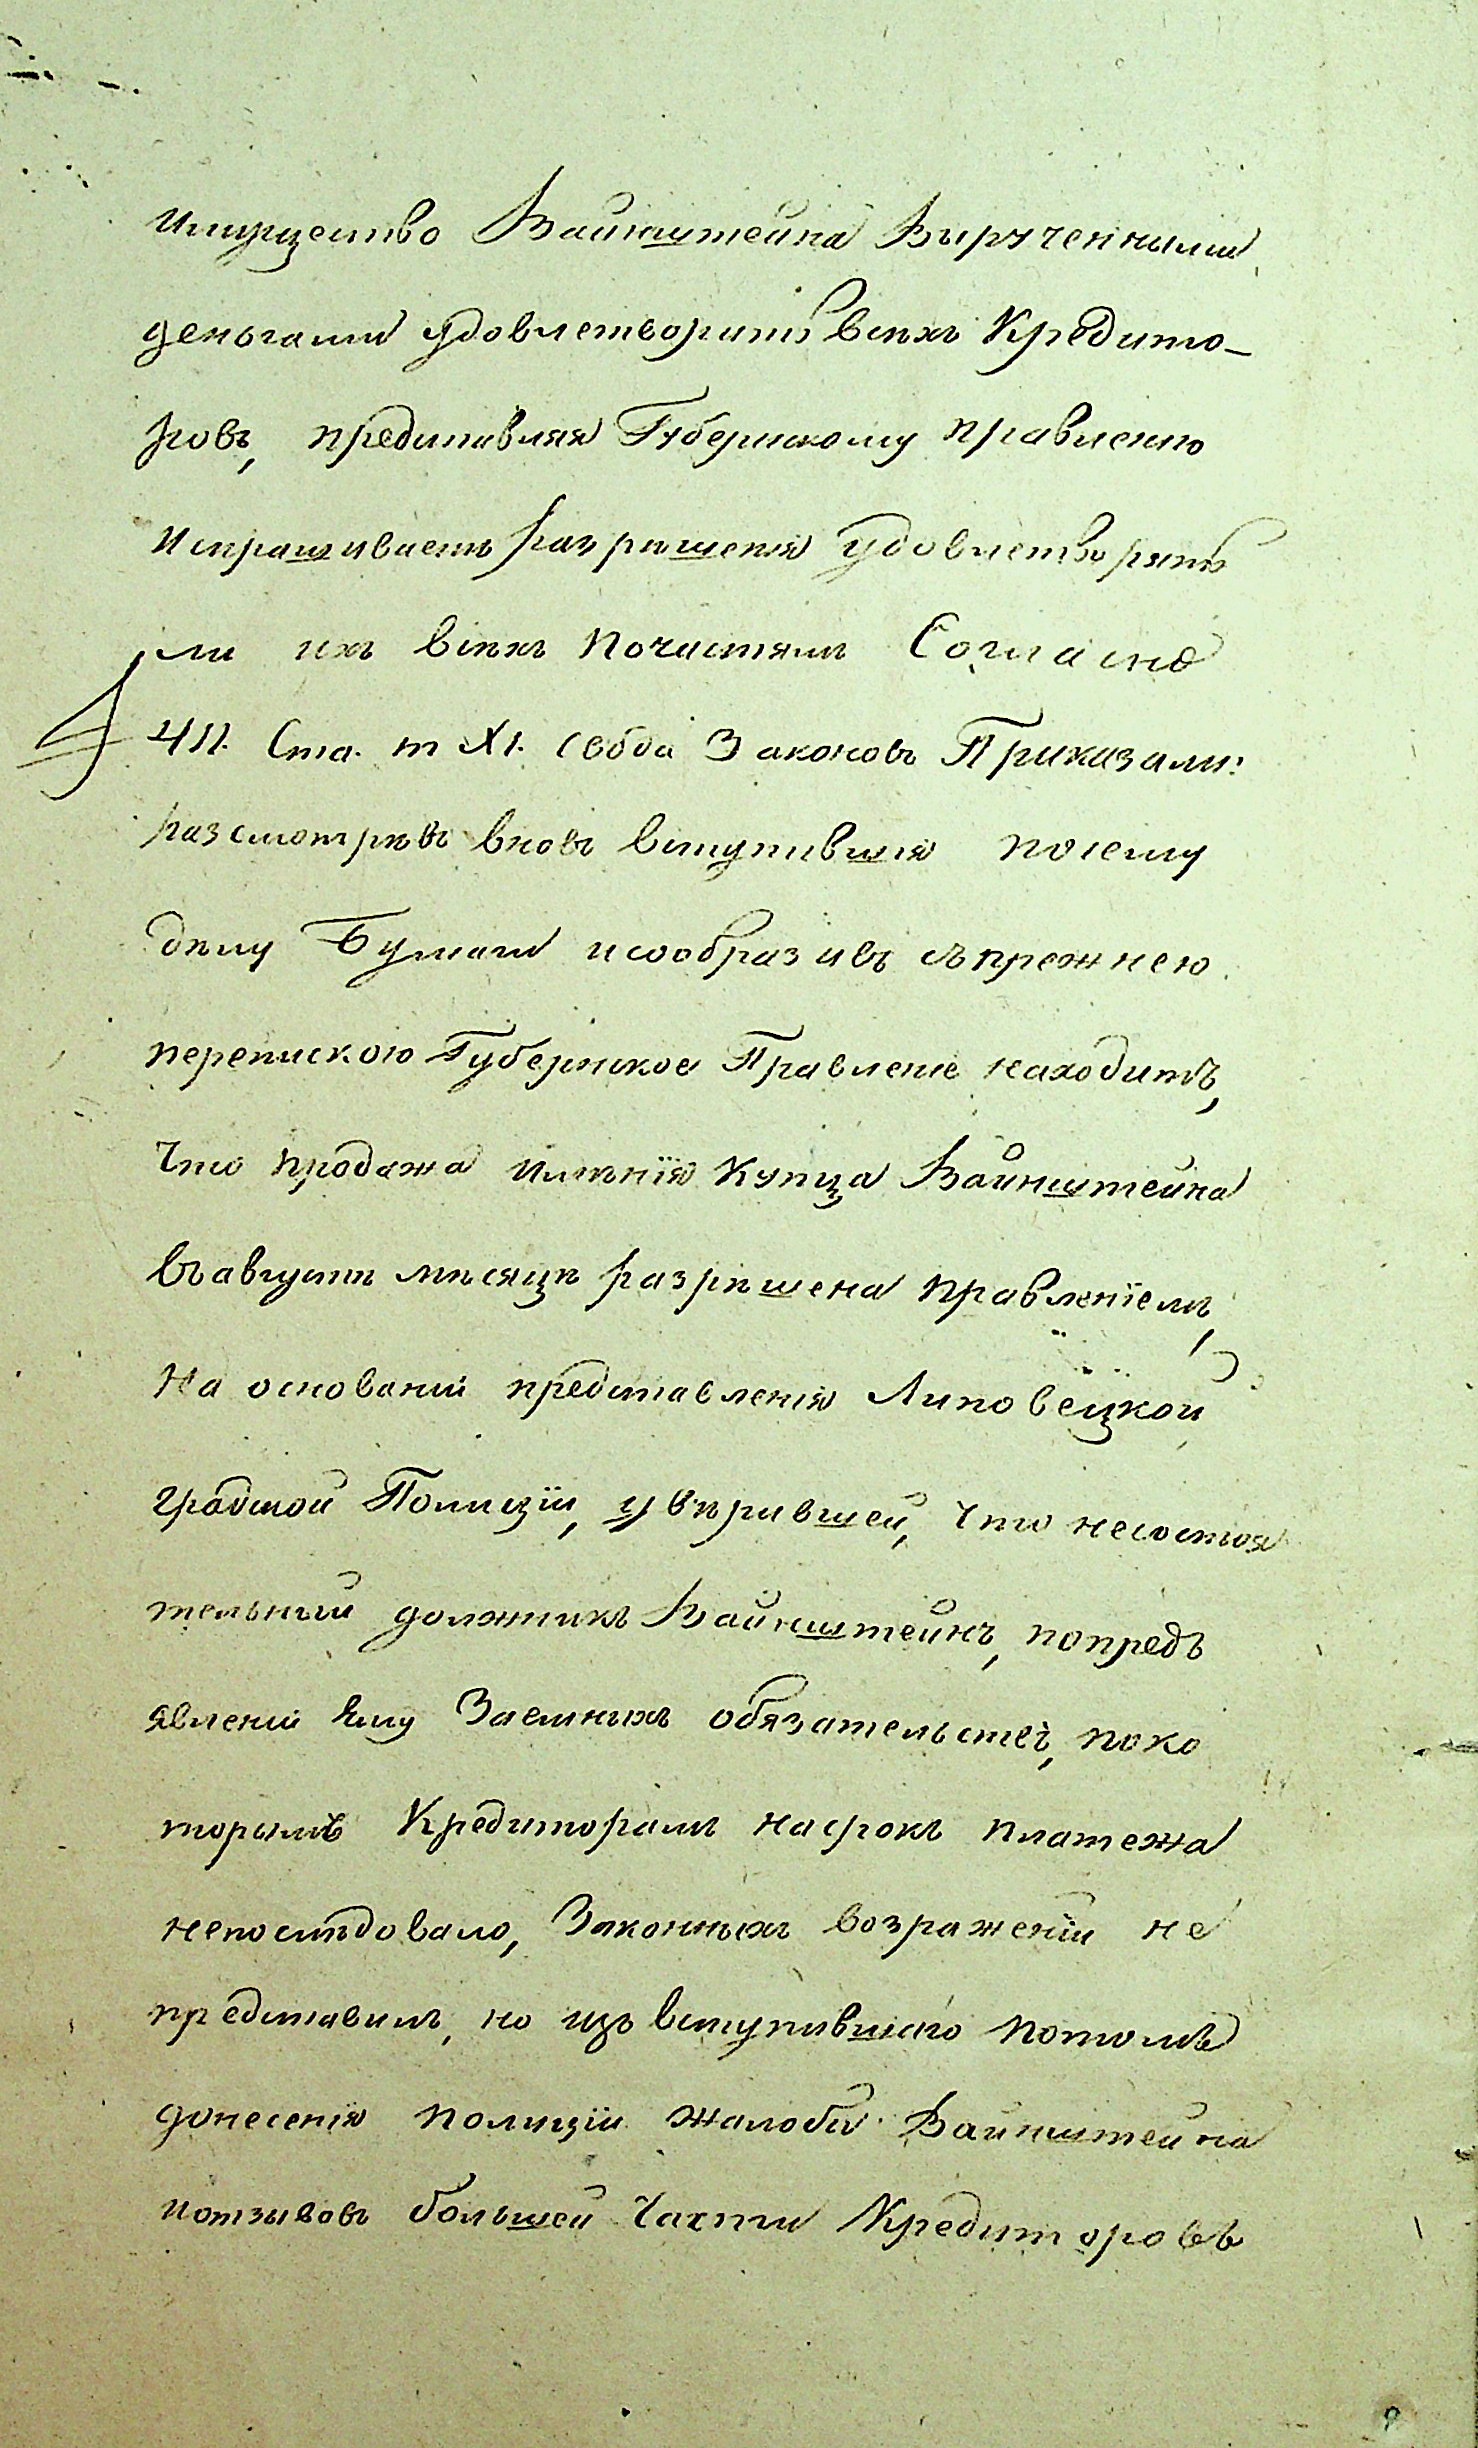 имущество Вайнштейна вырученными
деньгами удовлетворить всѣхъ Кредито-
ровъ, представляя Губернскому правленію
испрашиваетъ разрѣшенія удовлетворять
ли ихъ всѣхъ почастямъ Согласно
Ста. т XI. Свода Законовъ Приказали:
разсмотрѣвъ вновь вступившія посему
дѣлу Бумаги исообразивъ съпрежнею
перепискою Губернское Правленіе находитъ,
что продажа имѣнія купца Вайнштейна
въавгустѣ мѣсяцѣ разрѣшена правленіемъ,
на основаніи представленія Липовецкой
градской Полиціи, увѣрившей, что несостоя
тельный должникъ Вайнштейнъ, попредъ
явленіи ему Заемныхъ обязательствъ, поко
торымъ Кредиторамъ насрокъ платежа
непослѣдовало, Законныхъ возраженій не
представилъ, но изъ вступившаго потомъ
донесенія полиціи жалобы Вайнштейна
иотзывовъ большей части Кредиторовъ